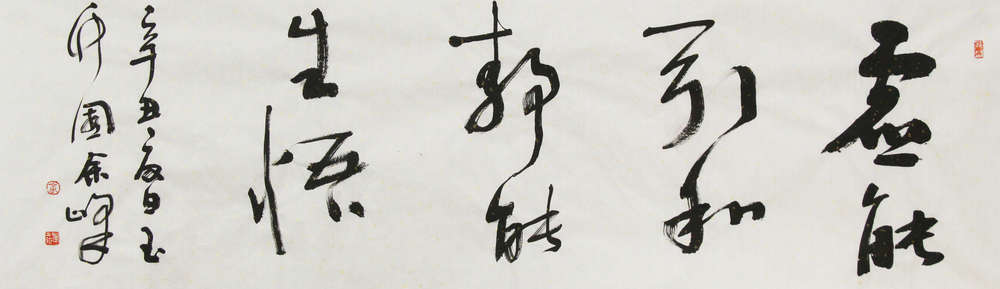 虚能
引和
静能
生悟
辛丑夏日玉
竹園余峰